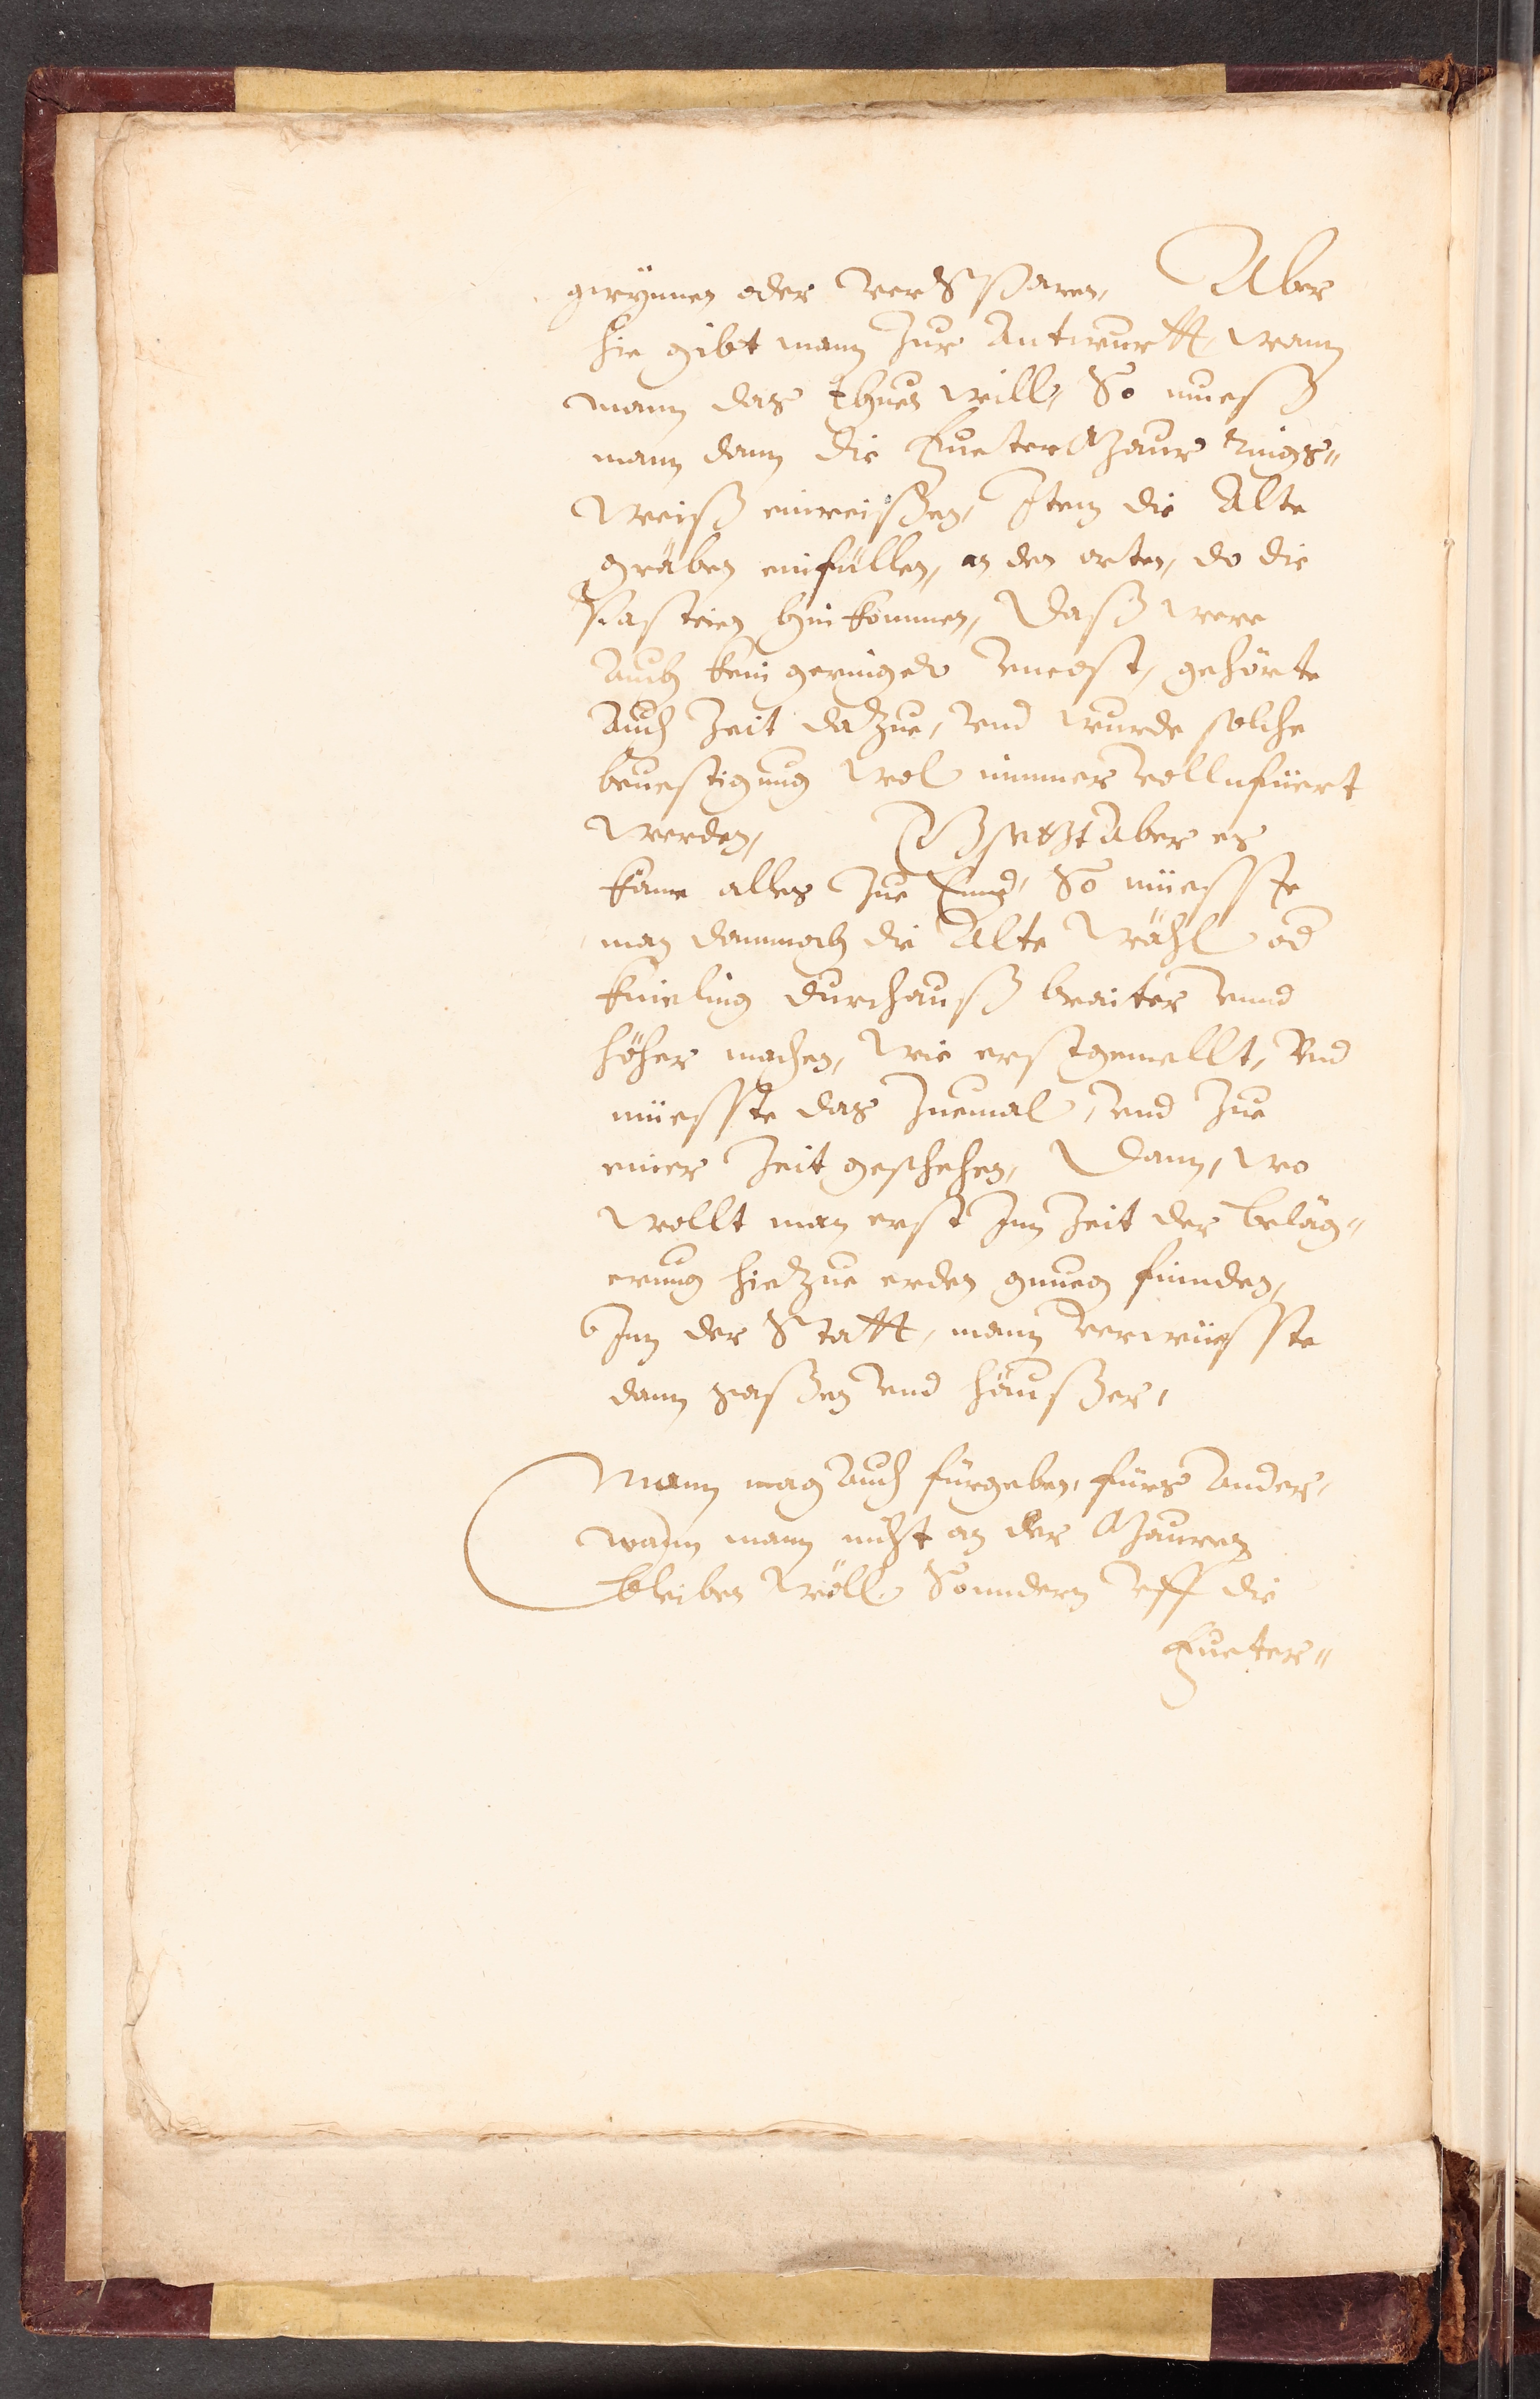 gwynnen oder verSparen, Aber
hie gibt mann Zur Antwurtt, wann
mann das thuen will, So muesß
mann dann die FueterMaur rings„
weiß einreißen, Item die Alte
gräben einfüllen, an den orten, do die
Pasteien hinkommen, Daß were
Auch kein geringer Uncost, gehörte
Auch Zeit dazue, Und wurde solche
bevestigung wol nimmer vollnfüert
werden, Gesetzt Aber es
käme alles Zue Ennd, So müesste
man dannnoch die Alte Wähl od
Knieling durchauß braiter unnd
höher machen, wie erstgemellt, Und
müesste das Zuemal, und Zue
einer Zeit geschehen, Dann, wo
wollt man erst Inn Zeit der beläg„
erung hiezue erden gnueg finnden,
Inn der Statt, mann verwüesste
dann gaßen und häußer,
Mann mag Auch fürgeben, fürs Ander,
wann mann nicht an der Mauren
bleiben wöll, Sonndern Uff die
Fueter„